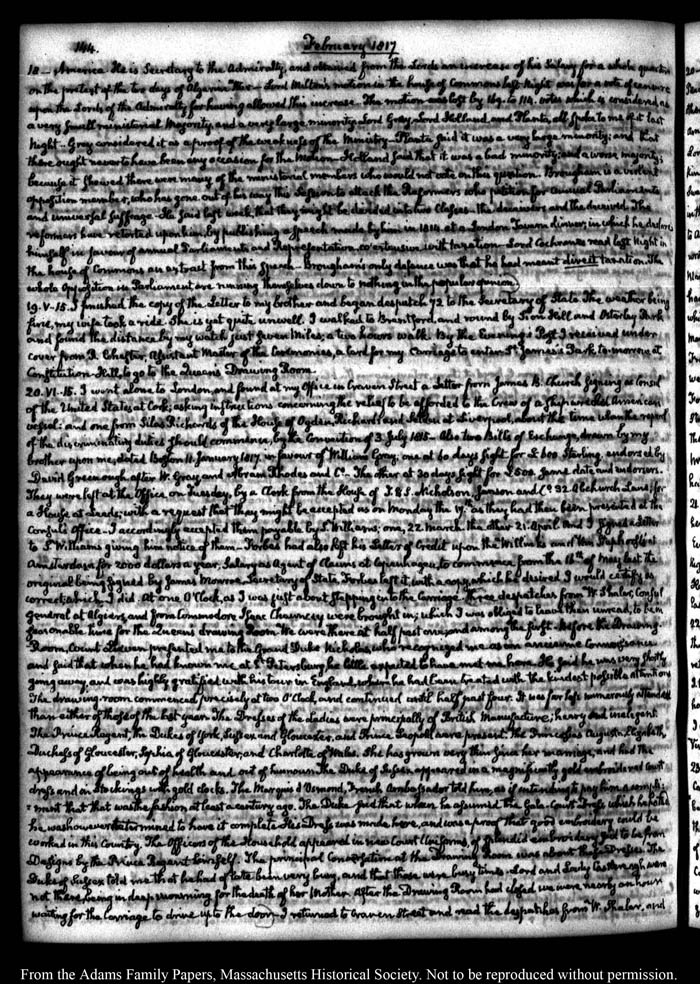 144.
February 1817
18.— America. He is Secretary to the Admiralty, and obtained from the Lords an increase of his Salary for a whole quarter
on the pretext of the two days of Algerine War— Lord Milton's motion in the house of Commons last Night was for a vote of censure
upon the Lords of the Admiralty for having allowed this increase. The motion was lost by 169. to 114. votes which is considered as
a very small ministerial Majority, and a very large minority. Lord Grey, Lord Holland, and Planta, all spoke to me of it last
Night— Grey considered it as a proof of the weakness of the Ministry— Planta said it was a very large minority; and that
there ought never to have been any occasion for the Motion— Holland said that it was a bad minority, and a worse majority;
because it shewed there were many of the ministerial members who would not vote on this question. Brougham is a violent
opposition member, who has gone out of his way this Session to attack the Reformers who petition for annual Parliaments
and universal suffrage. He said last week that they might be divided into two Classes— the deceivers and the deceived. The
reformers have retorted upon him, by publishing a Speech made by him in 1814 at a London Tavern dinner, in which he declares
himself in favour of annual Parliaments and Representation, co-extensive with taxation— Lord Cochrane read last Night in
the house of Commons an extract from this Speech— Brougham's only defence was that he had meant direct taxation. The
whole Opposition in Parliament are running themselves down to nothing in the popular opinion.
19. V.15. I finished the copy of the Letter to my brother and began despatch 72 to the Secretary of State. The weather being
fine, my wife took a ride. She is yet quite unwell. I walked to Brentford, and round by Sion Hill and Osterley Park
and found the distance by my watch just seven Miles; a two hours walk. By the Evening's Post I received under
cover from R. Chester, Assistant Master of the Ceremonies, a card for my Carriage to enter St. James's Park, to-morrow at
Constitution-Hill, to go to the Queen's Drawing Room.
20. VI.15. I went alone to London, and found at my Office in Craven Street a Letter from James B. Church signing as Consul
of the United States at Cork, asking instructions concerning the relief to be afforded to the Crew of a shipwrecked American
vessel: and one from Silas Richards of the House of Ogden, Richards and Selden at Liverpool, about the time when the repeal
of the discriminating duties should commence, by the Convention of 3. July 1815— Also two Bills of Exchange, drawn by my
brother upon me, dated Boston 11. January 1817. in favour of William Gray; one at 60 days sight for £600 Sterling, endorsed by
David Greenough, after W. Gray, and Abram Rhodes and Co.— The other at 30 days sight for £500. same date, and endorsers.
They were left at the Office on Tuesday, by a Clerk from the House of T. & S. Nicholson, Janson and Co. 32. Abchurch Lane; for
a House at Leeds; with a request that they might be accepted as on Monday the 17th. as they had then been presented at the
Consul's Office— I accordingly accepted them payable by S. Williams; one, 22. March, the other 21. April. and I signed a Letter
to S. Williams giving him notice of them— Forbes had also left his Letter of Credit upon the Willinks and Van Staphorsts at
Amsterdam, for 2000 dollars a year, Salary as Agent of Claims at Copenhagen, to commence from the 16th. of May last the
original being signed by James Monroe, Secretary of State. Forbes left it with a copy, which he desired I would certify as
correct; which I did. At one O'Clock, as I was just about stepping into the Carriage three despatches from W. Shaler, Consul
General at Algiers, and from Commodore Isaac Chauncey were brought in; which I was obliged to leave then unread, to be in
seasonable time for the Queens drawing Room. We were there at half past one, and among the first— before the Drawing
Room, Count Lieven presented me to the Grand Duke Nicholas, who recognized me as an ancienne connoissance
and said that when he had known me at St. Petersburg he little expected to have met me here. He said he was very shortly
going away, and was highly gratified with his tour in England, where he had been treated with the kindest possible attentions
The drawing-room commenced precisely at two O'Clock, and continued until half past four. It was far less numerously attended
than either of those of the last year. The Dresses of the Ladies were principally of British Manufacture; heavy and inelegant.
The Prince Regent, the Dukes of York, Sussex and Gloucester, and Prince Leopold were present. The Princesses Augusta, Elizabeth,
Duchess of Gloucester, Sophia of Gloucester, and Charlotte of Wales. She has grown very thin since her marriage, and had the
appearance of being out of health and out of humour. The Duke of Sussex appeared in a magnificently gold embroidered Court
dress and in Stockings with gold clocks. The Marquis d'Osmond, French Ambassador told him, as if intending to pay him a compli-
ment that that was the fashion at least a century ago. The Duke said that when he assumed the Gala-Court Dress which he hated
he was however determined to have it complete. His Dress was made here, and was a proof that good embroidery could be
worked in this Country. The Officers of the Household appeared in new Court Uniforms, of splendid embroidery said to be from
Designs by the Prince Regent himself. The principal Conversation at the Drawing Room was about the Dresses. The
Duke of Sussex told me that he had of late been very busy, and that these were busy times— Lord and Lady Castlereagh were
not there, being in deep mourning for the death of her Mother. After the Drawing Room had closed, we were nearly an hour
waiting for the carriage to drive up to the door— I returned to Craven Street and read the despatches from W. Shaler, and
From the Adams Family Papers, Massachusetts Historical Society. Not to be reproduced without permission.